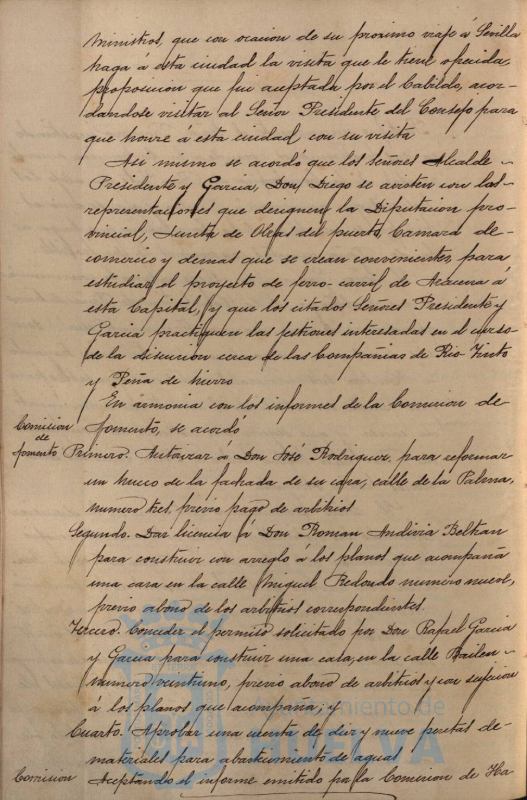 Ministros, que con ocasion de su proximo viaje á Sevilla
haga á esta ciudad la visita que le tiene ofrecida,
proposicion que fué aceptada por el Cabildo, acor-
dandose visitar al Señor Presidente del Consejo para
que honre á esta ciudad con su visita
Asi mismo se acordó que los Señores Alcalde
Presidente y Garcia, Don Diego se avisten con las
representaciones que designen la Diputacion pro-
vincial, Junta de Obras del puerto, Camara de
comercio y demas que se crean convenientes, para
estudiar el proyecto de ferro-carril de Aracena á
esta Capital, y que los citados Señores Presidente y
Garcia practiquen las gestiones interesadas en el curso
de la discusion cerca de las Compañias de Rio-Tinto
y Peña de hierro
En armonia con los informes de la Comision de
Fomento, se acordó
Comision
de
fomento
Primero. Autorizar á Don José Rodriguez, para reformar
un hueco de la fachada de su casa, calle de la Palma,
numero tres, previo pago de arbitrios
Segundo. Dar licencia á Don Roman Andivia Beltran
para construir con arreglo á los planos que acompaña
una casa en la calle Miguel Redondo numero nueve,
previo abono de los arbitrios correspondientes.
Tercero. Conceder el permiso solicitado por Don Rafael Garcia
y Garcia para construir una casa, en la calle Bailen
numero veintiuno, previo abono de arbitrios y con sujecion
á los planos que acompaña; y
Cuarto. Aprobar una cuenta de diez y nueve pesetas de
materiales para abastecimiento de aguas
Comision
Aceptando el informe emitido por la Comision de Ha
Ayuntamiento de
HUELVA